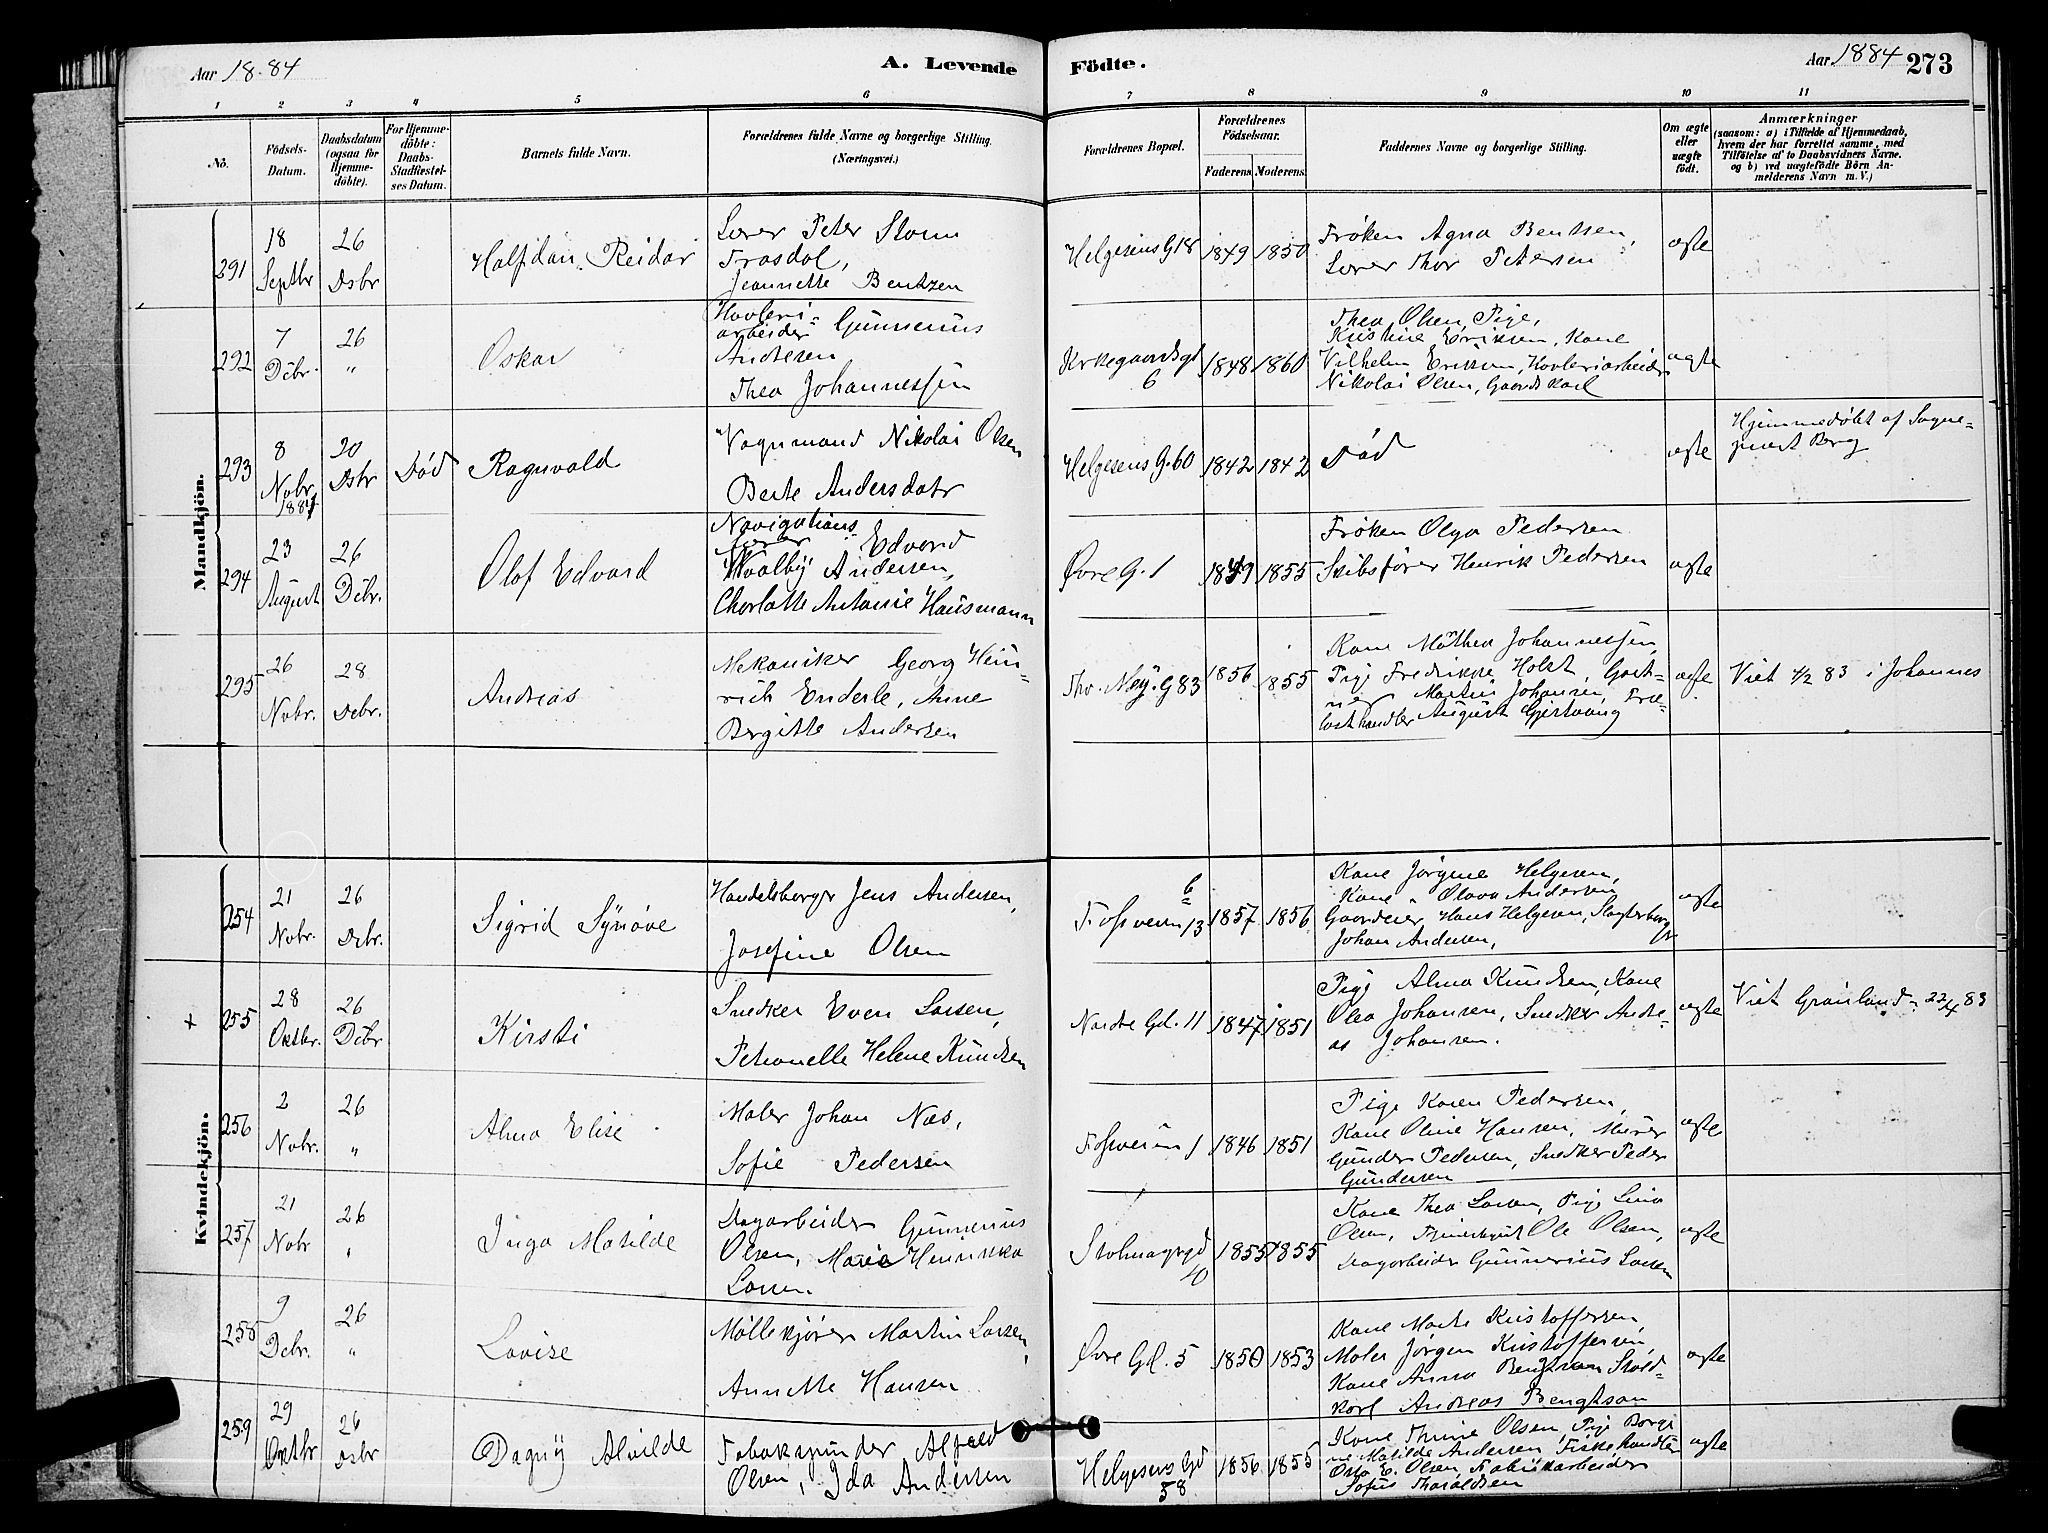 Aar 1884
A. Levende
Födte.
Aar 1884
273
1 2 3 4 5 6 7 8 9 10 11
No.
Födsels-
Datum.
Daabsdatum
(ogsaa for
Hjemme-
döbte).
For Hjemme-
döbte:
Daabs-
Stadfæstel-
ses Datum.
Barnets fulde Navn.
Forældrenes fulde Navne og borgerlige Stilling.
(Næringsvei.)
Forældrenes Bopæl.
Forældrenes
Födselsaar.
Faderens Moderens
Faddernes Navne og borgerlige Stilling.
Om ægte
eller
uægte
födt.
Anmærkninger
(saasom: a) i Tilfælde af Hjemmedaab,
hvem der har forrettet samme, med
Tilföielse af to Daabsvidners Navne.
og b) ved uægtefödte Börn An-
melderens Navn m. V.)
Mandkjön.
291
18
Septbr
26
Dsbr
Halfdan Reidar
Lærer Peter Storm
Frasdal,
Jeannette Bentzen
Helgesens G 18
1849
1850
Frøken Agna Bentsen,
Lærer Thor Petersen
ægte
292
7
Dcbr.
26
"
Oskar
Høvleri-
arbeider Gunnerius
Andresen
Thea Johannessen
Kirkegaardsgd
6
1848
1860
Thea Olsen Pige,
Kristine Eriksen, Kone
Vilhelm Eriksen, Høvleriarbeider
Nikolai Olsen, Gaardskarl
ægte
293
8
Nobr.
1884
20
Dsbr
Død
Ragnvald
Vognmand Nikolai Olsen
Berte Andersdatr
Helgesens G. 60
1842
1842
Død
ægte
Hjemmedøbt af Sogne-
prest Berg
294
23
August
26
Dcbr.
Olof Edvard
Navigations
Edvard
Kvalby Andersen,
Charlotte Antonie Hausmann
Øvre G. 1
1849
1855
Frøken Olga Pedersen
Skibsfører Henrik Pedersen
ægte
295
26
Nobr.
28
Dcbr.
Andreas
Mekaniker Georg Hein-
rich Enderle, Anne
Birgitte Andersen
Thv. Mey. G 83
1856
1855
Kone Mathea Johannessen,
Pige Fredrikke Holst, Gart-
ner Martin Johansen, Træ-
lasthandler August Gjertving
ægte
Viet 4/2 83 i Johannes
Kvindekjön.
254
21
Nobr.
26
Dcbr.
Sigrid Synøve
Handelsborger Jens Andersen,
Josefine Olsen
Fossveien 13
b
1857
1856
Kone Jørgine Helgesen,
Kone Olava Andersen
Gaardeier Hans Helgesen, Slagterborger
Johan Andersen,
ægte
+
255
28
Oktbr.
26
Dcbr
Kirsti
Snedker Even Larsen,
Petronelle Helene Knudsen
Nordre Gd. 11
1847
1851
Pige Alma Knudsen, Kone
Olea Johansen, Snedker Andre-
as Johansen.
ægte
Viet Grønland 22/4 83
256
2
Nobr.
26
"
Alma Elise
Maler Johan Næs,
Sofie Pedersen
Fossveien 1
1846
1851
Pige Karen Pedersen,
Kone Oline Hansen, Murer
Gunder Pedersen, Snedker Peder
Gundersen
ægte
257
21
Nobr
26
"
Inga Matilde
Dagarbeider Gunnerius
Olsen, Maria Henrikka
Larsen
Stolmagergd
40
1855
1855
Kone Thea Larsen, Pige Lina
Olsen, Ole Olsen,
Dagarbeider Gunnerius Larsen
ægte
258
9
Dcbr.
26
"
Lovise
Møllekjører Martin Larsen,
Annette Hansen
Øvre Gd. 5
1850
1853
Kone Marte Kristoffersen,
Maler Jørgen Kristoffersen,
Kone Anna Bengtson Stald-
karl Andreas Bengtson
ægte
259
29
Oktbr
26
Dsbr
Dagny Alvilde
Tobakspinder Alfred
Olsen, Ida Andersen
Helgesens Gd
58
1856
1855
Kone Thrine Olsen, Pige Borgi
ne Matilde Andersen Fiskehandler
E. Olsen, Fabrikarbeider
Sofus Tharaldsen
ægte